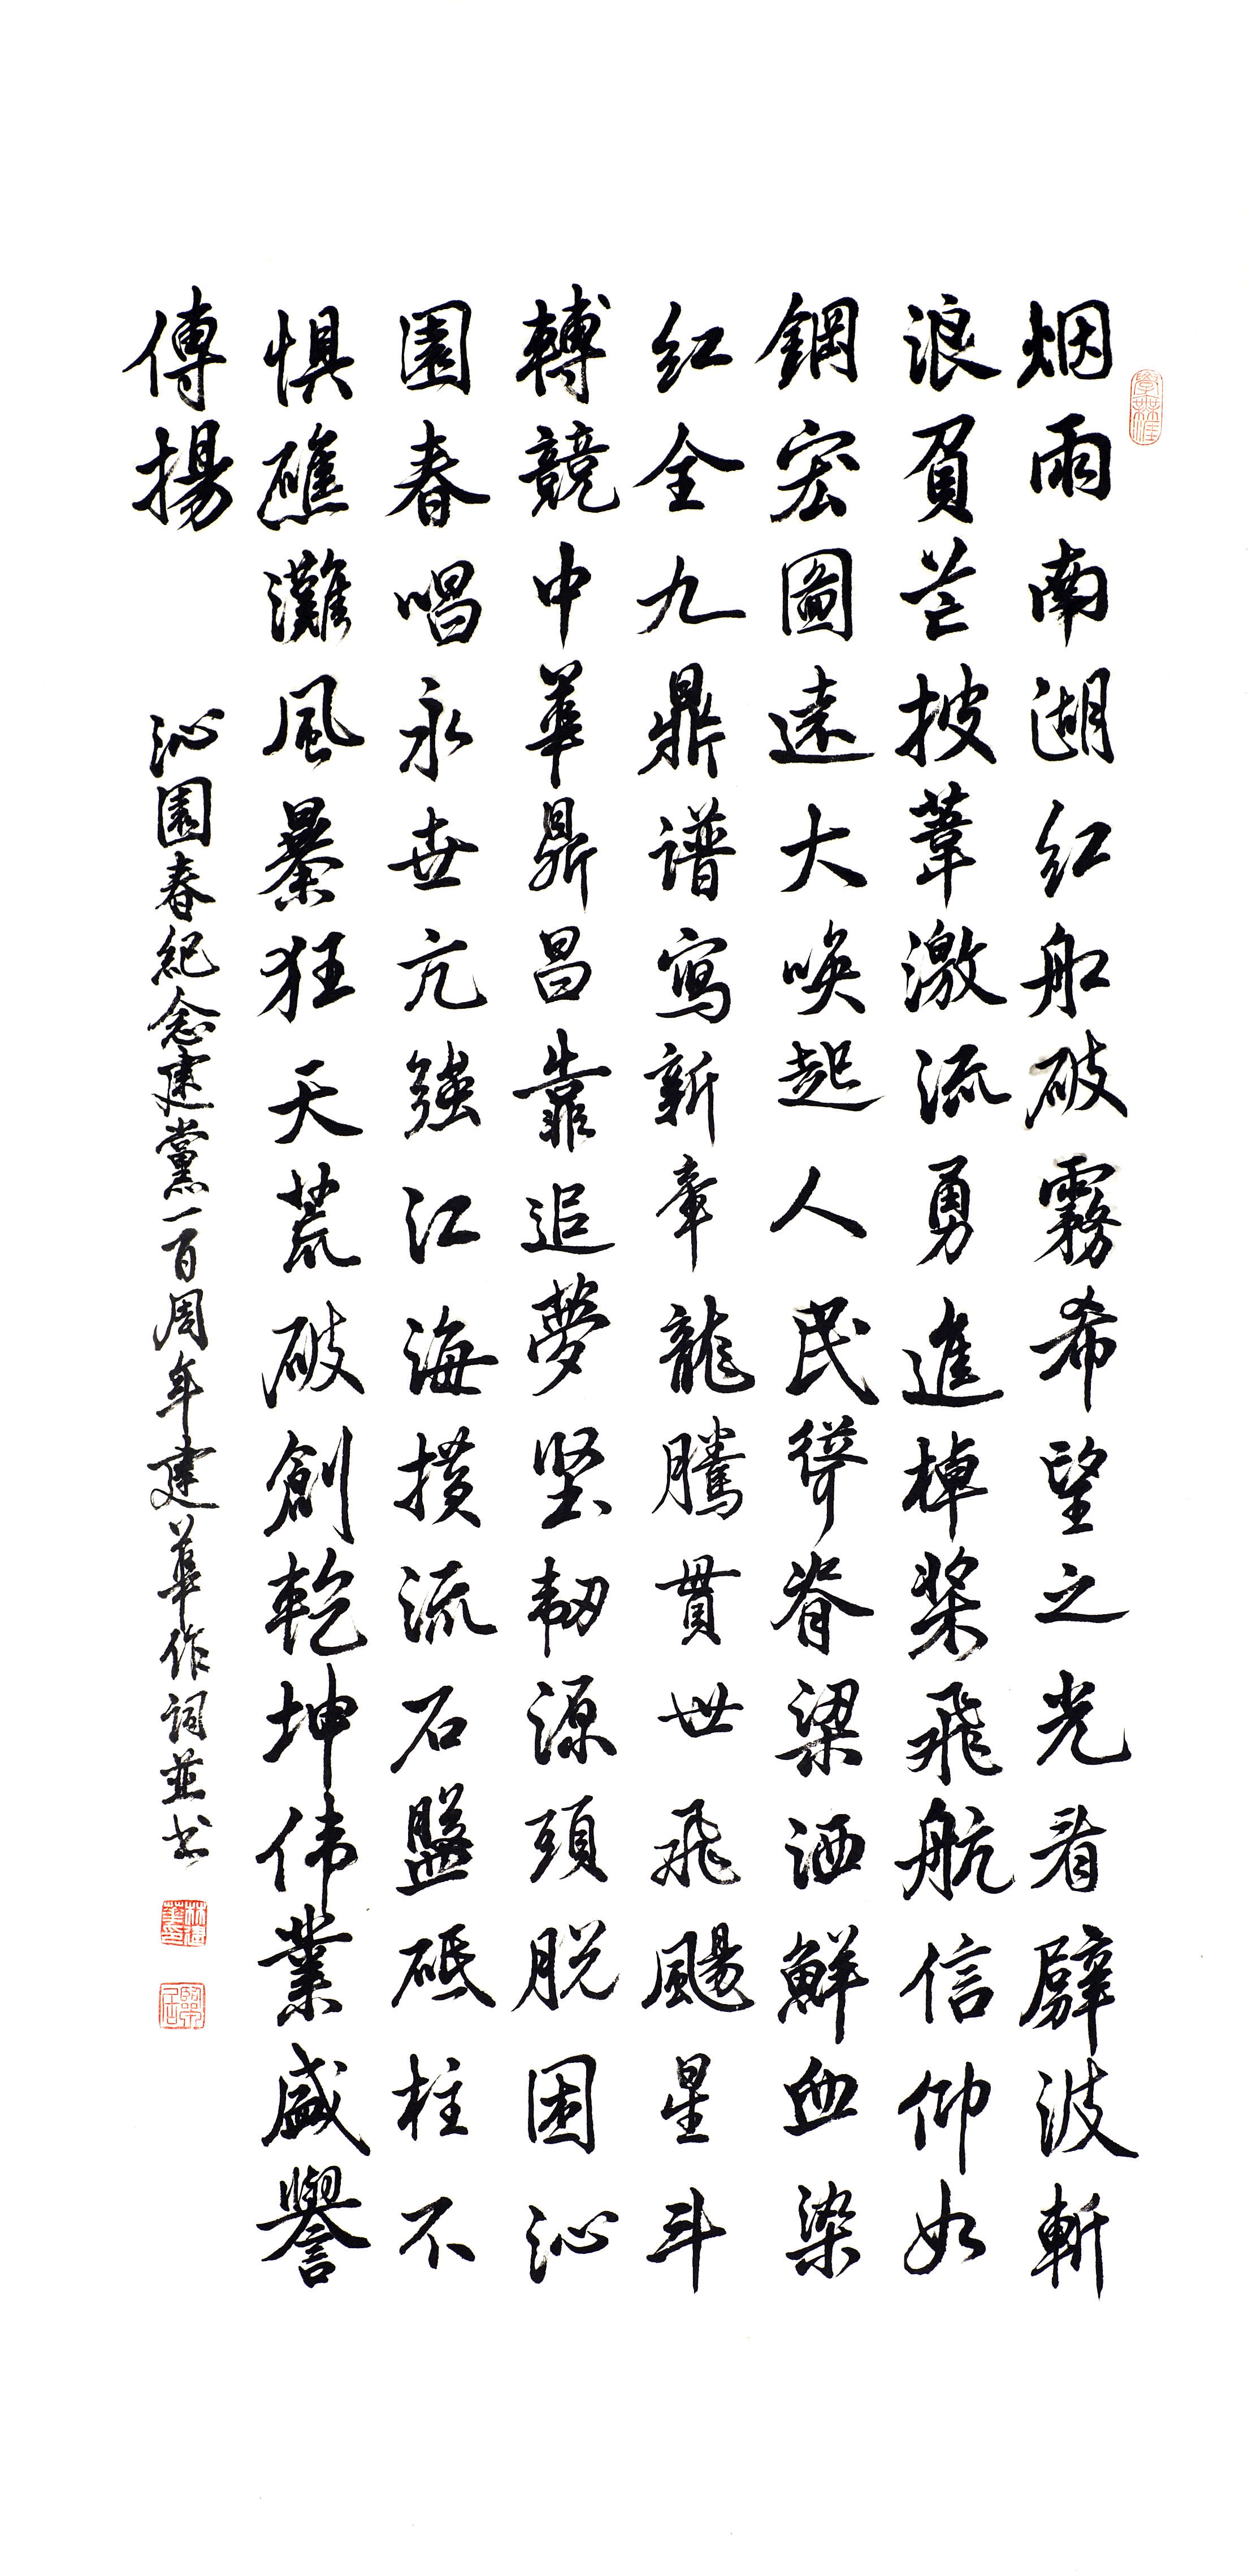 烟雨南湖红船破霧希望之光看劈波斬
浪負芒披葦激流勇進棹桨飛航信仰如
鋼宏圖遠大唤起人民聳脊梁洒鮮血染
红全九鼎谱寫新章龍騰貫世飛颺星斗
轉競中華鼎昌靠追夢坚韧源頭脱困沁
園春唱永世亢強江海横流石盤砥柱不
惧礁灘風暴狂天荒破創乾坤伟業盛譽
傳揚
沁園春紀念建黨一百周年建華作詞並书
學無涯
林建華印